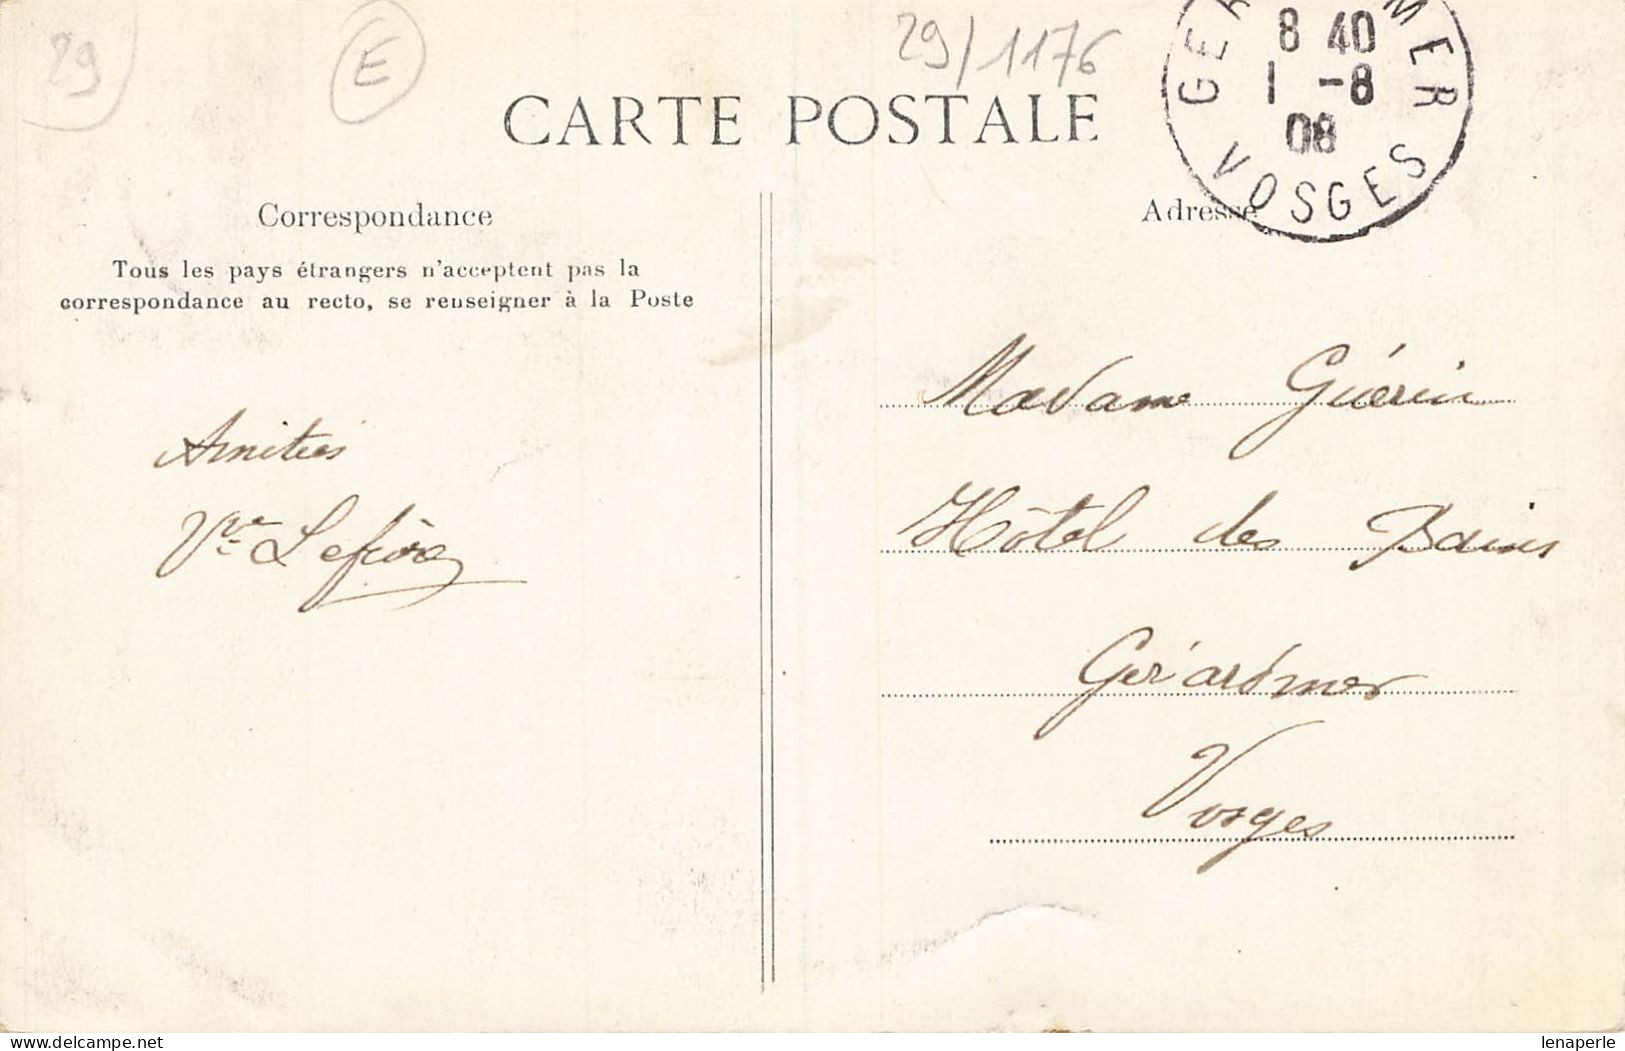 29
E
29/1176
CARTE POSTALE
GER MER
8 40
1 -8
08
VOSGES
Correspondance
Adresse
Tous les pays étrangers n'acceptent pas la
correspondance au recto, se renseigner à la Poste
Madame Guérin
Amitiés
Hôtel des Bains
Vve Lefèvre
Gérardmer
Vosges
lenaperle